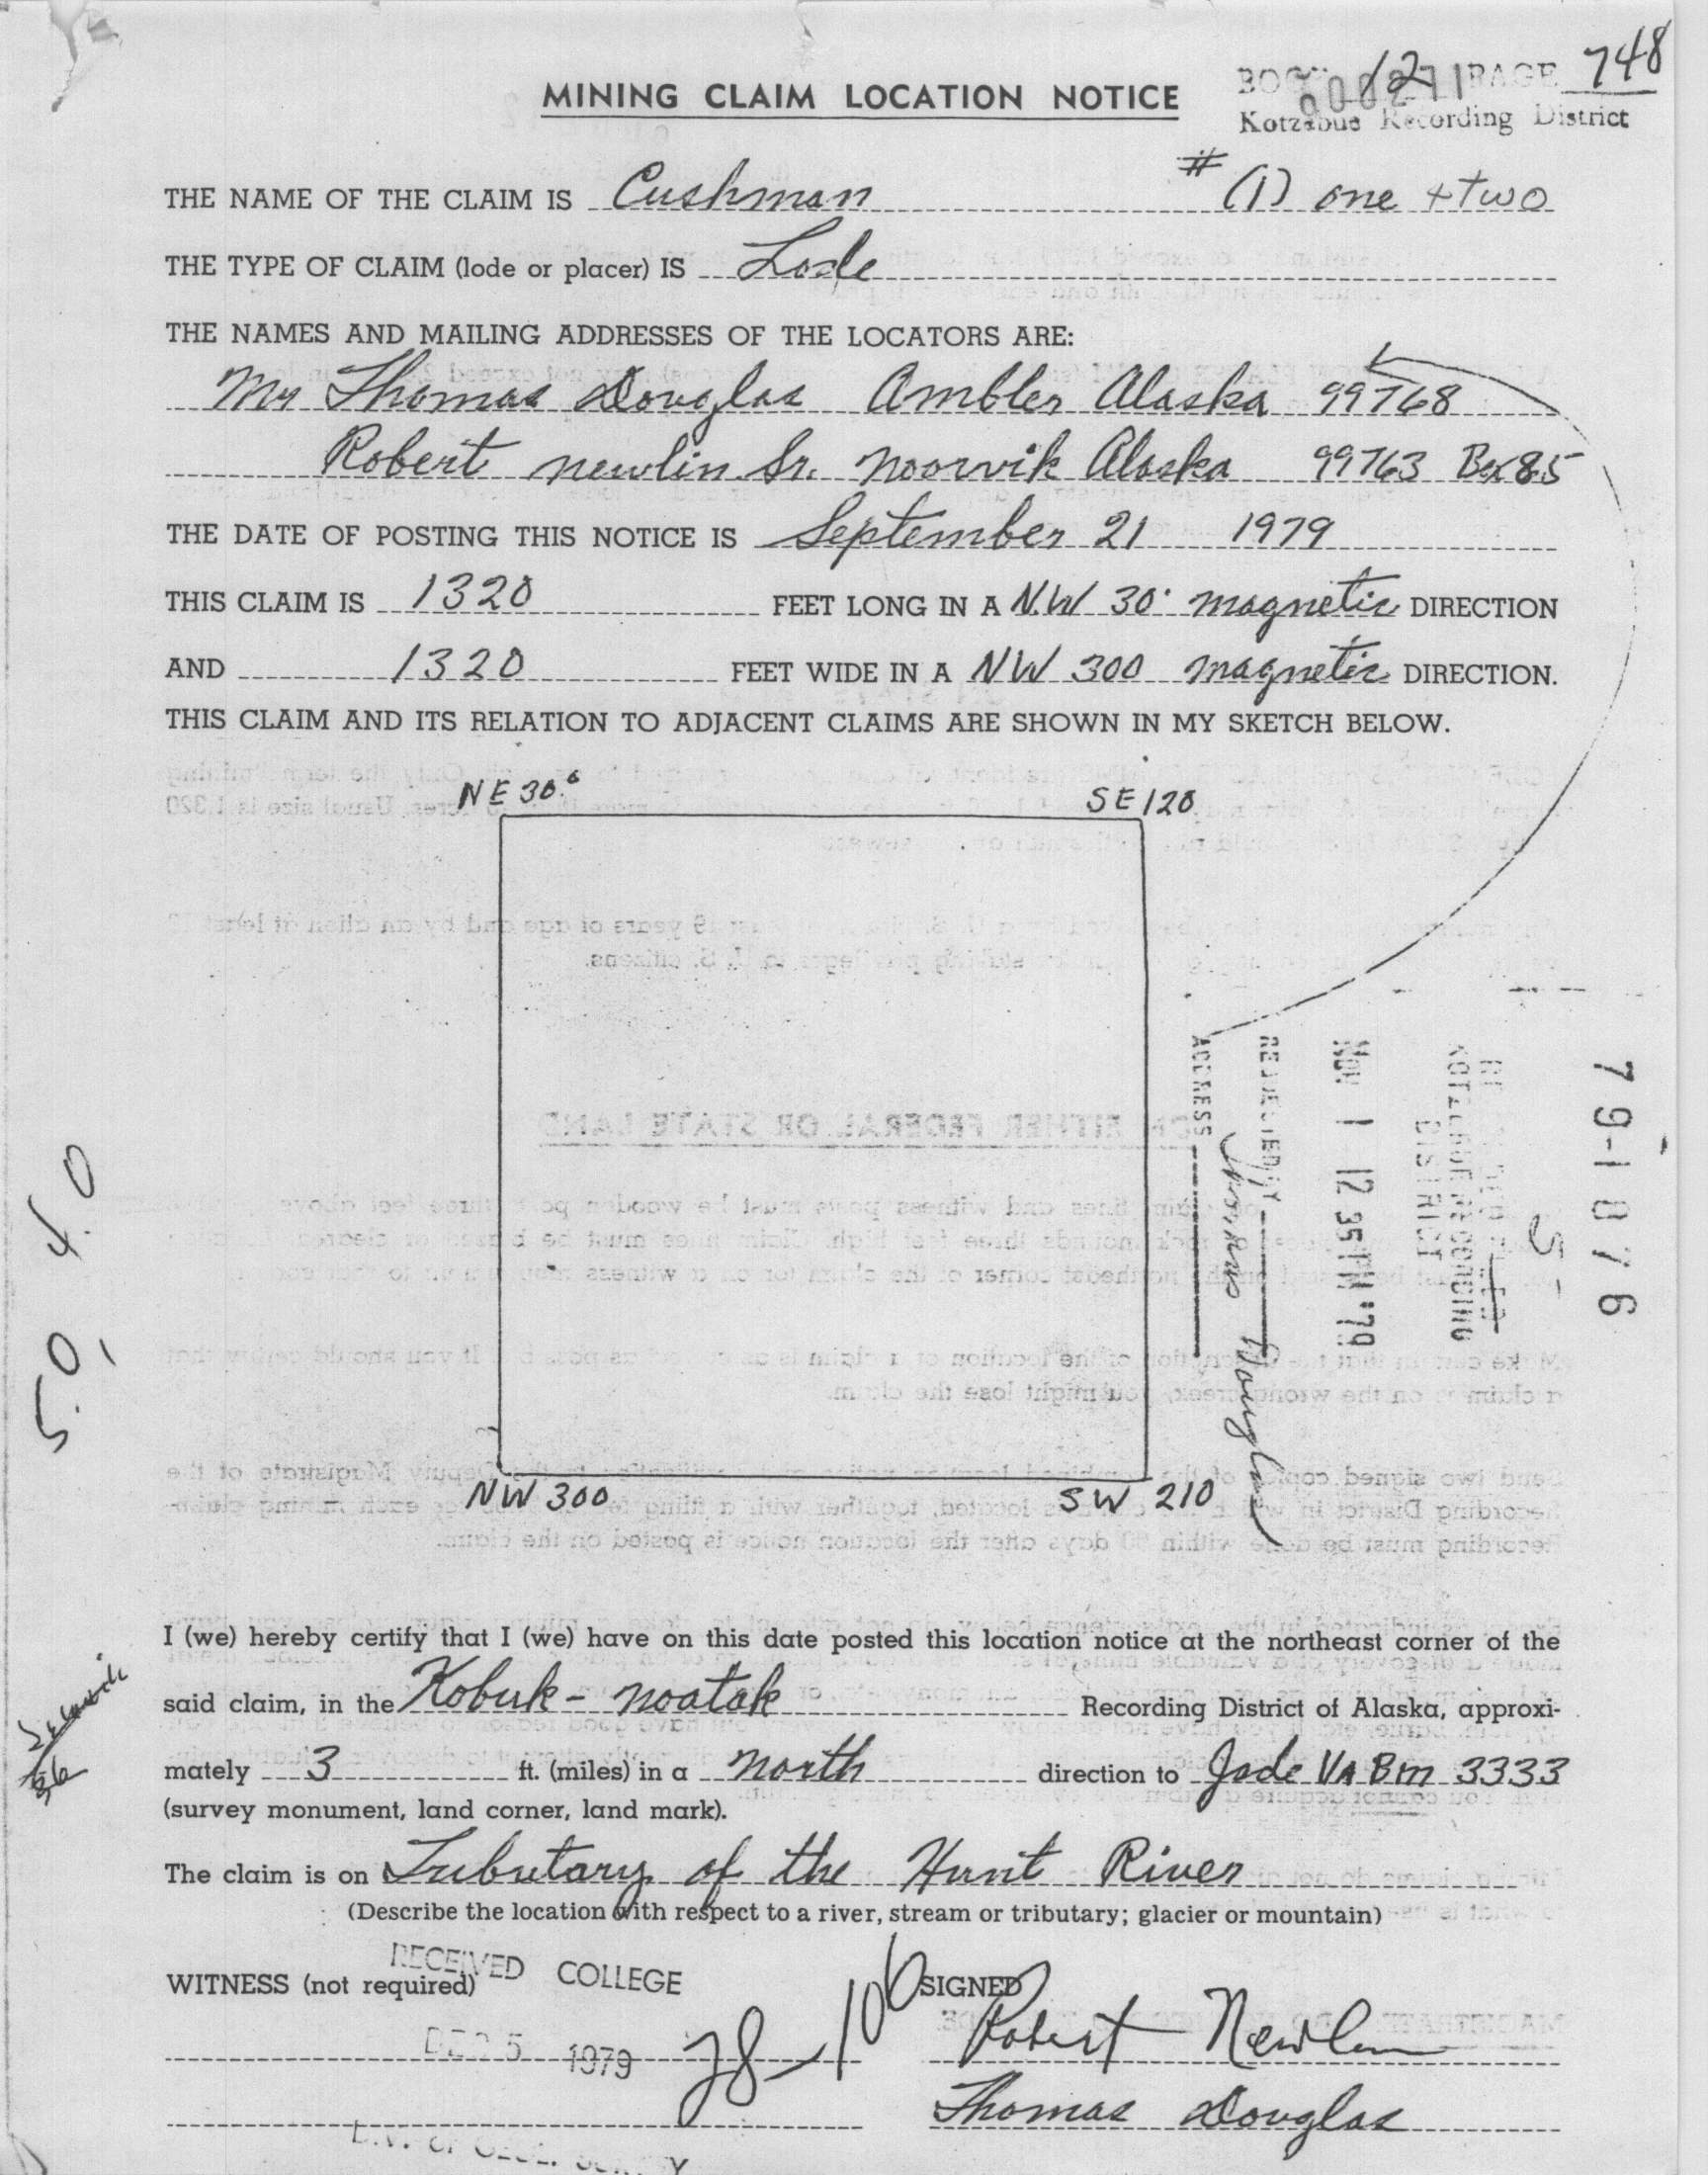 BOOK 12 PAGE 748
Kotzebue Recording District
MINING CLAIM LOCATION NOTICE
THE NAME OF THE CLAIM IS Cushman # (1) one + two
THE TYPE OF CLAIM (lode or placer) IS Lode
THE NAMES AND MAILING ADDRESSES OF THE LOCATORS ARE:
Mr Thomas Douglas Ambler Alaska 99768
Robert Newlin Sr. Noorvik Alaska 99763 Box 85
THE DATE OF POSTING THIS NOTICE IS September 21 1979
THIS CLAIM IS 1320 FEET LONG IN A N.W 30° magnetic DIRECTION
AND 1320 FEET WIDE IN A NW 300 magnetic DIRECTION.
THIS CLAIM AND ITS RELATION TO ADJACENT CLAIMS ARE SHOWN IN MY SKETCH BELOW.
NE 30° SE 120
79-1876
KOTZEBUE RECORDING
DISTRICT
NOV 1 12 35 PM '79
REQUESTED BY Thomas Douglas
ADDRESS
5.0, 4.0
NW 300 SW 210
I (we) hereby certify that I (we) have on this date posted this location notice at the northeast corner of the
said claim, in the Kobuk - Noatak Recording District of Alaska, approxi-
mately 3 ft. (miles) in a North direction to Jade VABM 3333
(survey monument, land corner, land mark).
The claim is on Tributary of the Hunt River
(Describe the location with respect to a river, stream or tributary; glacier or mountain)
RECEIVED COLLEGE
WITNESS (not required) SIGNED
DEC 5 1979 28-106 Robert Newlin
Thomas Douglas